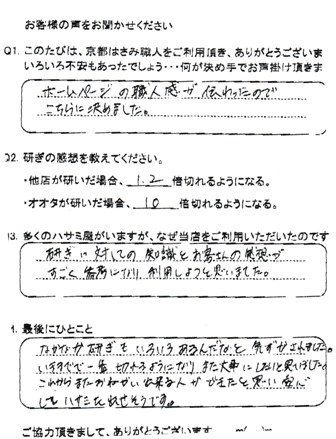 お客様の声をお聞かせください
Q1. このたびは、京都はさみ職人をご利用頂き、ありがとうございま
いろいろ不安もあったでしょう・・・何が決め手でお声掛け頂きま
ホームページの職人感が伝わったので
こちらに決めました。
Q2. 研ぎの感想を教えてください。
・他店が研いだ場合、 1.2 倍切れるようになる。
・オオタが研いだ場合、 10 倍切れるようになる。
13. 多くのハサミ屋がいますが、なぜ当店をご利用いただいたのです
研ぎに対しての知識とお客さんの感想が
すごく参考になり利用しようと思いました。
1. 最後にひとこと
なかなか研ぎもいろいろあるんだなと気ずかされました。
いままでで一番切れるようになりまた大事にしたいと思いました。
これからまたおねがい出来る人ができたと思い安心
してハサミを出せそうです。
ご協力頂きまして、ありがとうございます